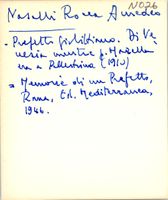 N026
Naselli Rocca Amedeo
- Prefetto giolittiano. Di Ve
nezia mentre p. Musella
era a Pellestrina (1910)
- Memorie di un Prefetto,
Roma, Ed. Mediterranea,
1946.